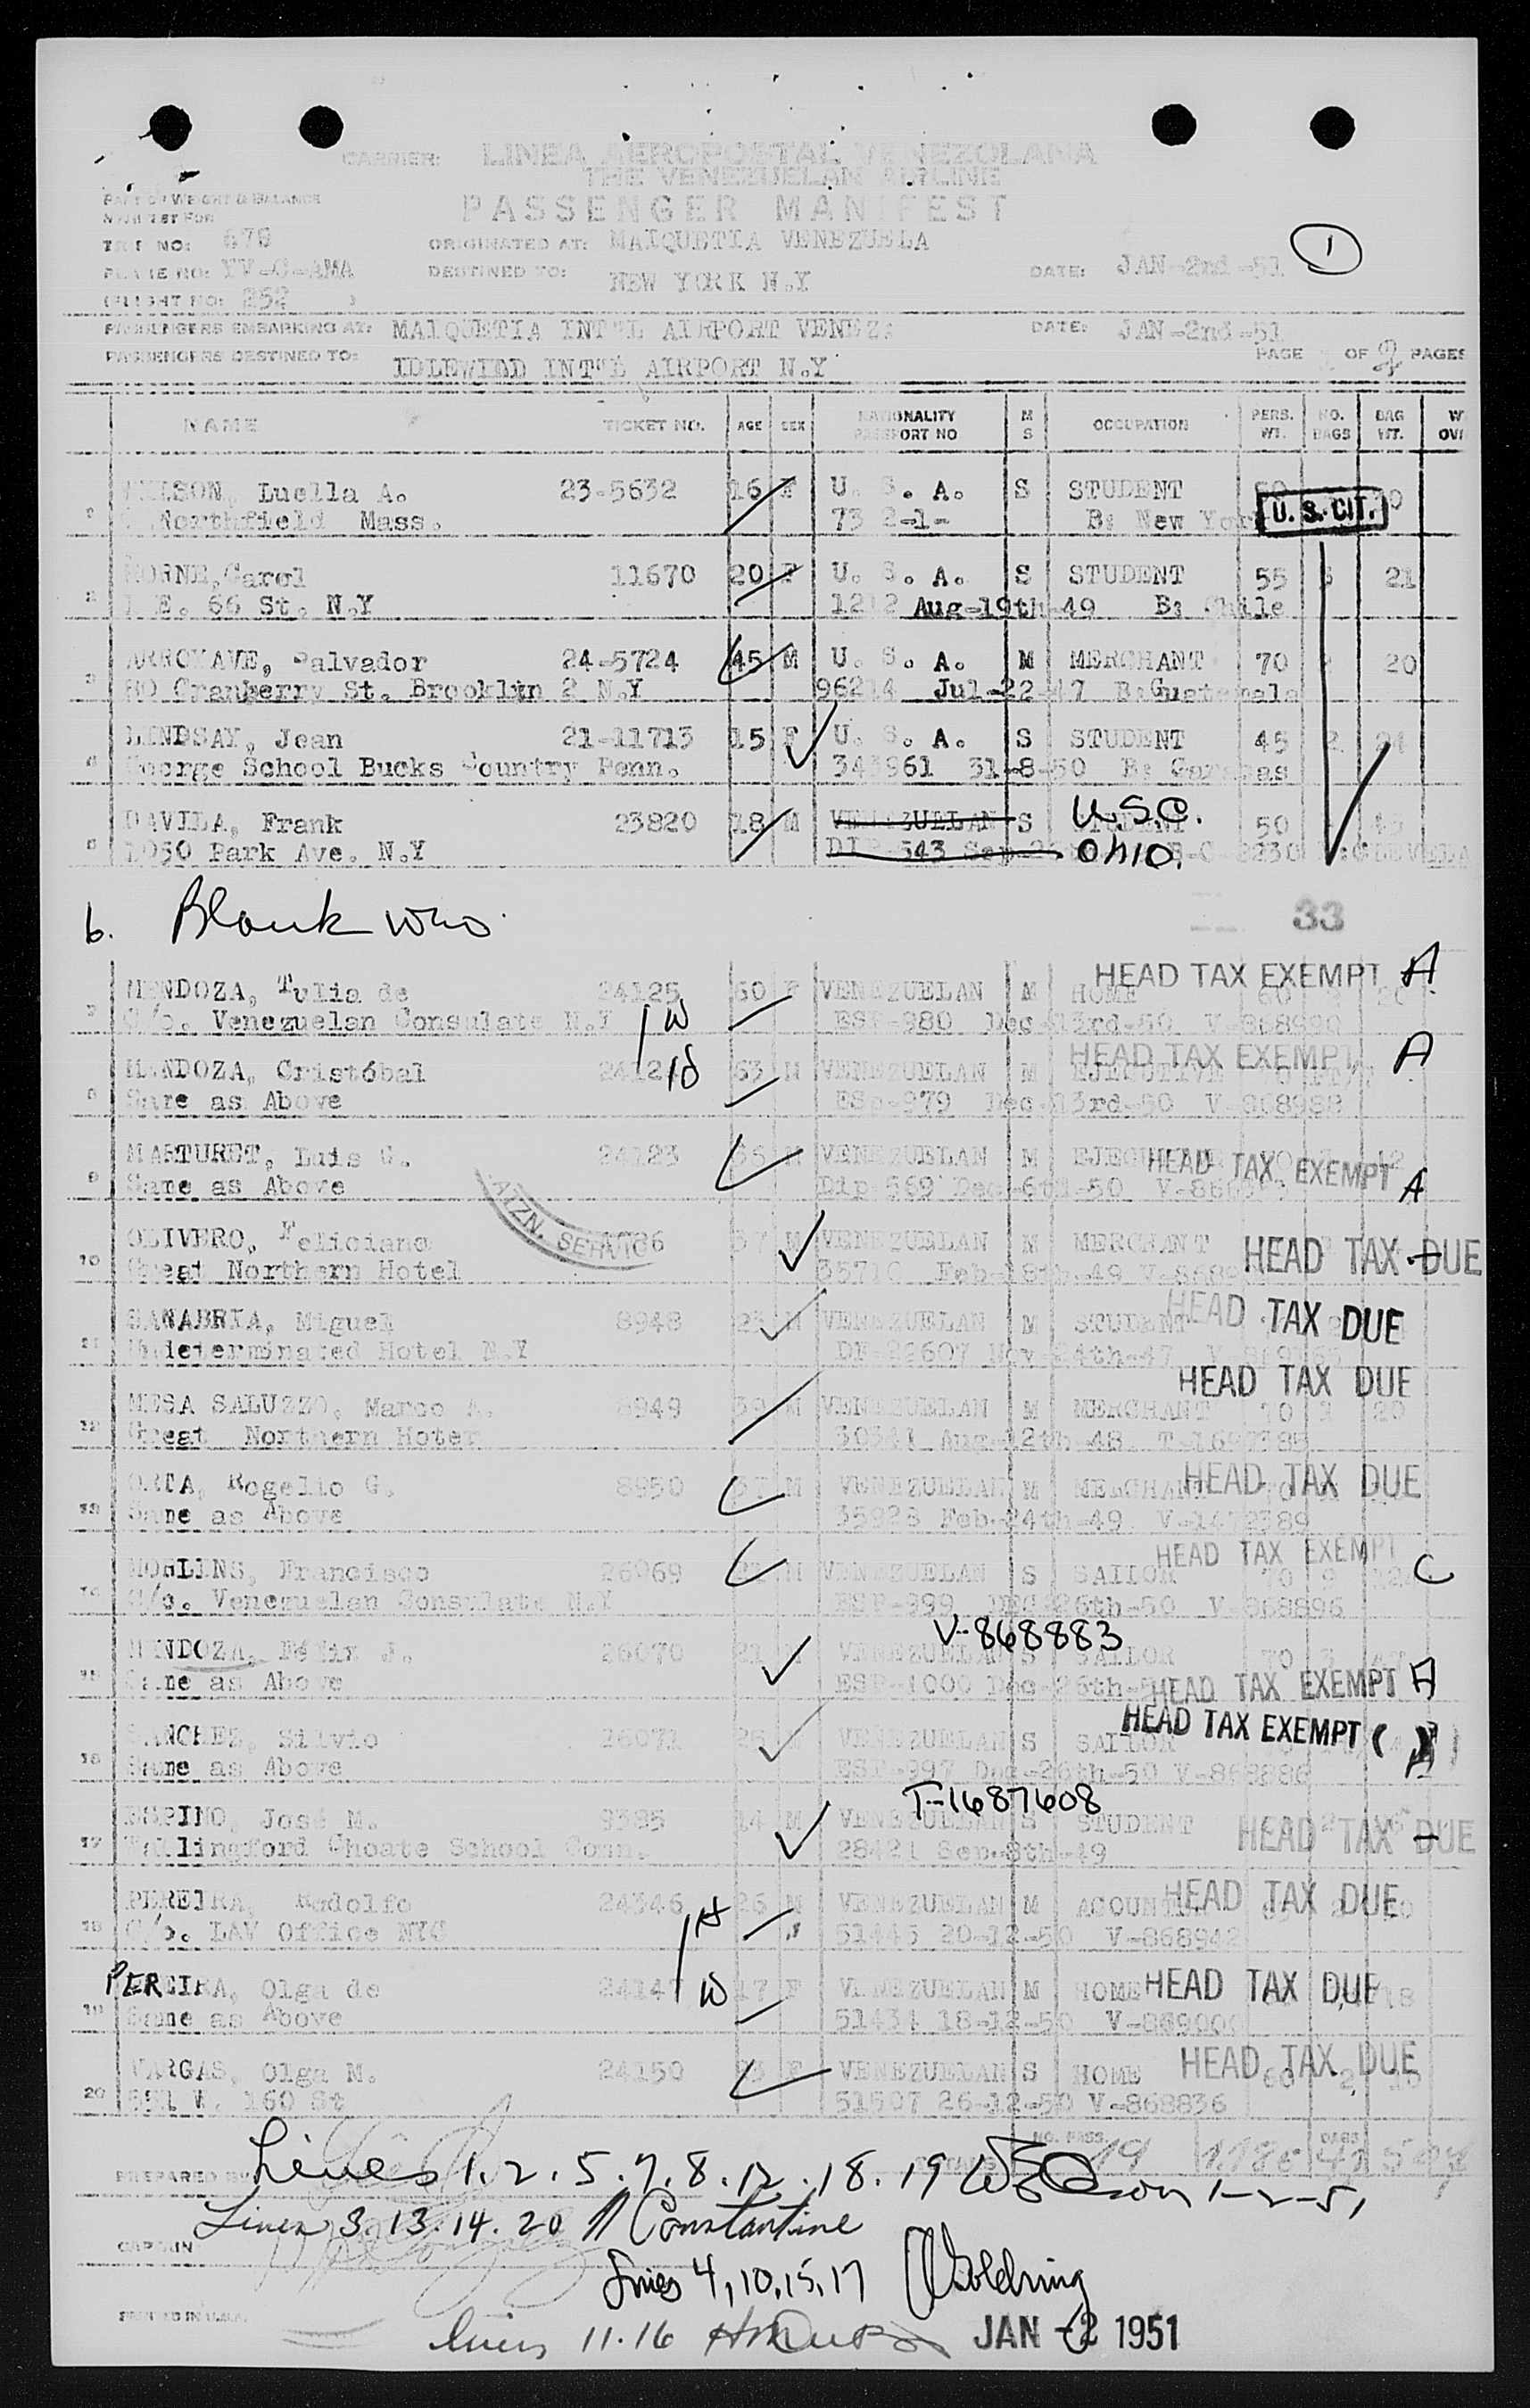 CARRIER: LINEA AEROPOSTAL VENEZOLANA
THE VENEZUELAN AIRLINE
PART OF WEIGHT & BALANCE
PASSENGER MANIFEST
TRIP NO: 678
ORIGINATED AT: MAIQUETIA VENEZUELA
1
PLANE NO: YV-C-AMA
DESTINED TO: NEW YORK N.Y
DATE: JAN-2nd-51
FLIGHT NO: 252
PASSENGERS EMBARKING AT: MAIQUETIA INT'L AIRPORT VENEZ:
DATE: JAN-2nd-51
PASSENGERS DESTINED TO: IDLEWILD INT'L AIRPORT N.Y
PAGE OF 2 PAGES
NAME TICKET NO. AGE SEX NATIONALITY PASSPORT NO M S OCCUPATION PERS. WT. NO. BAGS BAG WT.
Luella A. 23-5632 16 F U. S. A. S STUDENT
Northfield Mass. 73 2-1- B: New York U. S. CIT.
2 HORNE, Carol 11670 20 F U. S. A. S STUDENT 55 21
1 E. 66 St. N.Y 1212 Aug-19th-49 B: Chile
3 ARROYAVE, Salvador 24-5724 45 M U. S. A. M MERCHANT 70 20
80 Cranberry St. Brooklyn 2 N.Y 96214 Jul-22-47 B:Guatemala
4 LINDSAY, Jean 21-11713 15 F U. S. A. S STUDENT 45 2 21
George School Bucks Country Penn. 343961 31-8-50 B: Caracas
5 DAVILA, Frank 23820 18 M VENEZUELAN S STUDENT U.S.C. 50
1050 Park Ave. N.Y DIP-543 Sep- Ohio.
6. Blank
33
7 MENDOZA, Tulia de 24125 60 F VENEZUELAN M HOME HEAD TAX EXEMPT A
C/o. Venezuelan Consulate N.Y W ESP-980 Dec-13rd-50 V-868990
8 MENDOZA, Cristóbal 24124 63 M VENEZUELAN M EJECUTIVE HEAD TAX EXEMPT A
Same as Above ESP-979 Dec-13rd-50 V-868988
9 MARTURET, Luis G. 24123 35 M VENEZUELAN M HEAD TAX EXEMPT A
Same as Above Dip-569 Dec-6th-50
ATZN. SERVIC
10 OLIVERO, Feliciano 37 M VENEZUELAN M MERCHANT HEAD TAX DUE
Great Northern Hotel Feb-18th-49
11 SANABRIA, Miguel 8948 23 M VENEZUELAN M STUDENT HEAD TAX DUE
Undeterminated Hotel N.Y 22607 Nov 24th-47
12 MESA SALUZZO, Marco A. 8949 39 M VENEZUELAN M MERCHANT 70 3 20 HEAD TAX DUE
Great Northern Hoter 30341 Aug-12th-48 T-1697385
13 ORTA, Rogelio G. 8950 37 M VENEZUELAN M MERCHANT HEAD TAX DUE
Same as Above 35928 Feb-24th-49 V-1472389
14 Francisco 26069 M VENEZUELAN S SAILOR 70 HEAD TAX EXEMPT C
C/o. Venezuelan Consulate N.Y ESP-999 DEC-26th-50 V-868896
V-868883
15 MENDOZA, Félix J. 26070 21 VENEZUELAN S SAILOR 70
Same as Above ESP-1000 Dec-26th- HEAD TAX EXEMPT A
16 SANCHEZ, Silvio 26071 26 VENEZUELAN S SAILOR HEAD TAX EXEMPT
Same as Above ESP-997 Dec-26th-50 V-868886
T-1687608
17 ESPINO, José M. 9385 14 M VENEZUELAN S STUDENT HEAD TAX DUE
Wallingford Choate School Conn. 28421 Sep-8th-49
18 PEREIRA, Rodolfo 24346 26 M VENEZUELAN M HEAD TAX DUE
C/o. LAV Office NYC H 51445 20-12-50 V-868942
19 PEREIRA, Olga de 24147 17 F VENEZUELAN M HOME HEAD TAX DUE 18
Same as Above W 51434 18-12-50
20 VARGAS, Olga M. 24150 23 F VENEZUELAN S HOME HEAD TAX DUE
551 W. 160 St 51507 26-12-50 V-868836
NO. PASS. 19 BAGS
PREPARED BY
Lines 1.2.5.7.8.12.18.19 1-2-51
Lines 3.13.14.20 Constantine
CAPTAIN
Lines 4,10,15,17 Goldring
PRINTED IN U.S.A.
lines 11.16
JAN - 2 1951